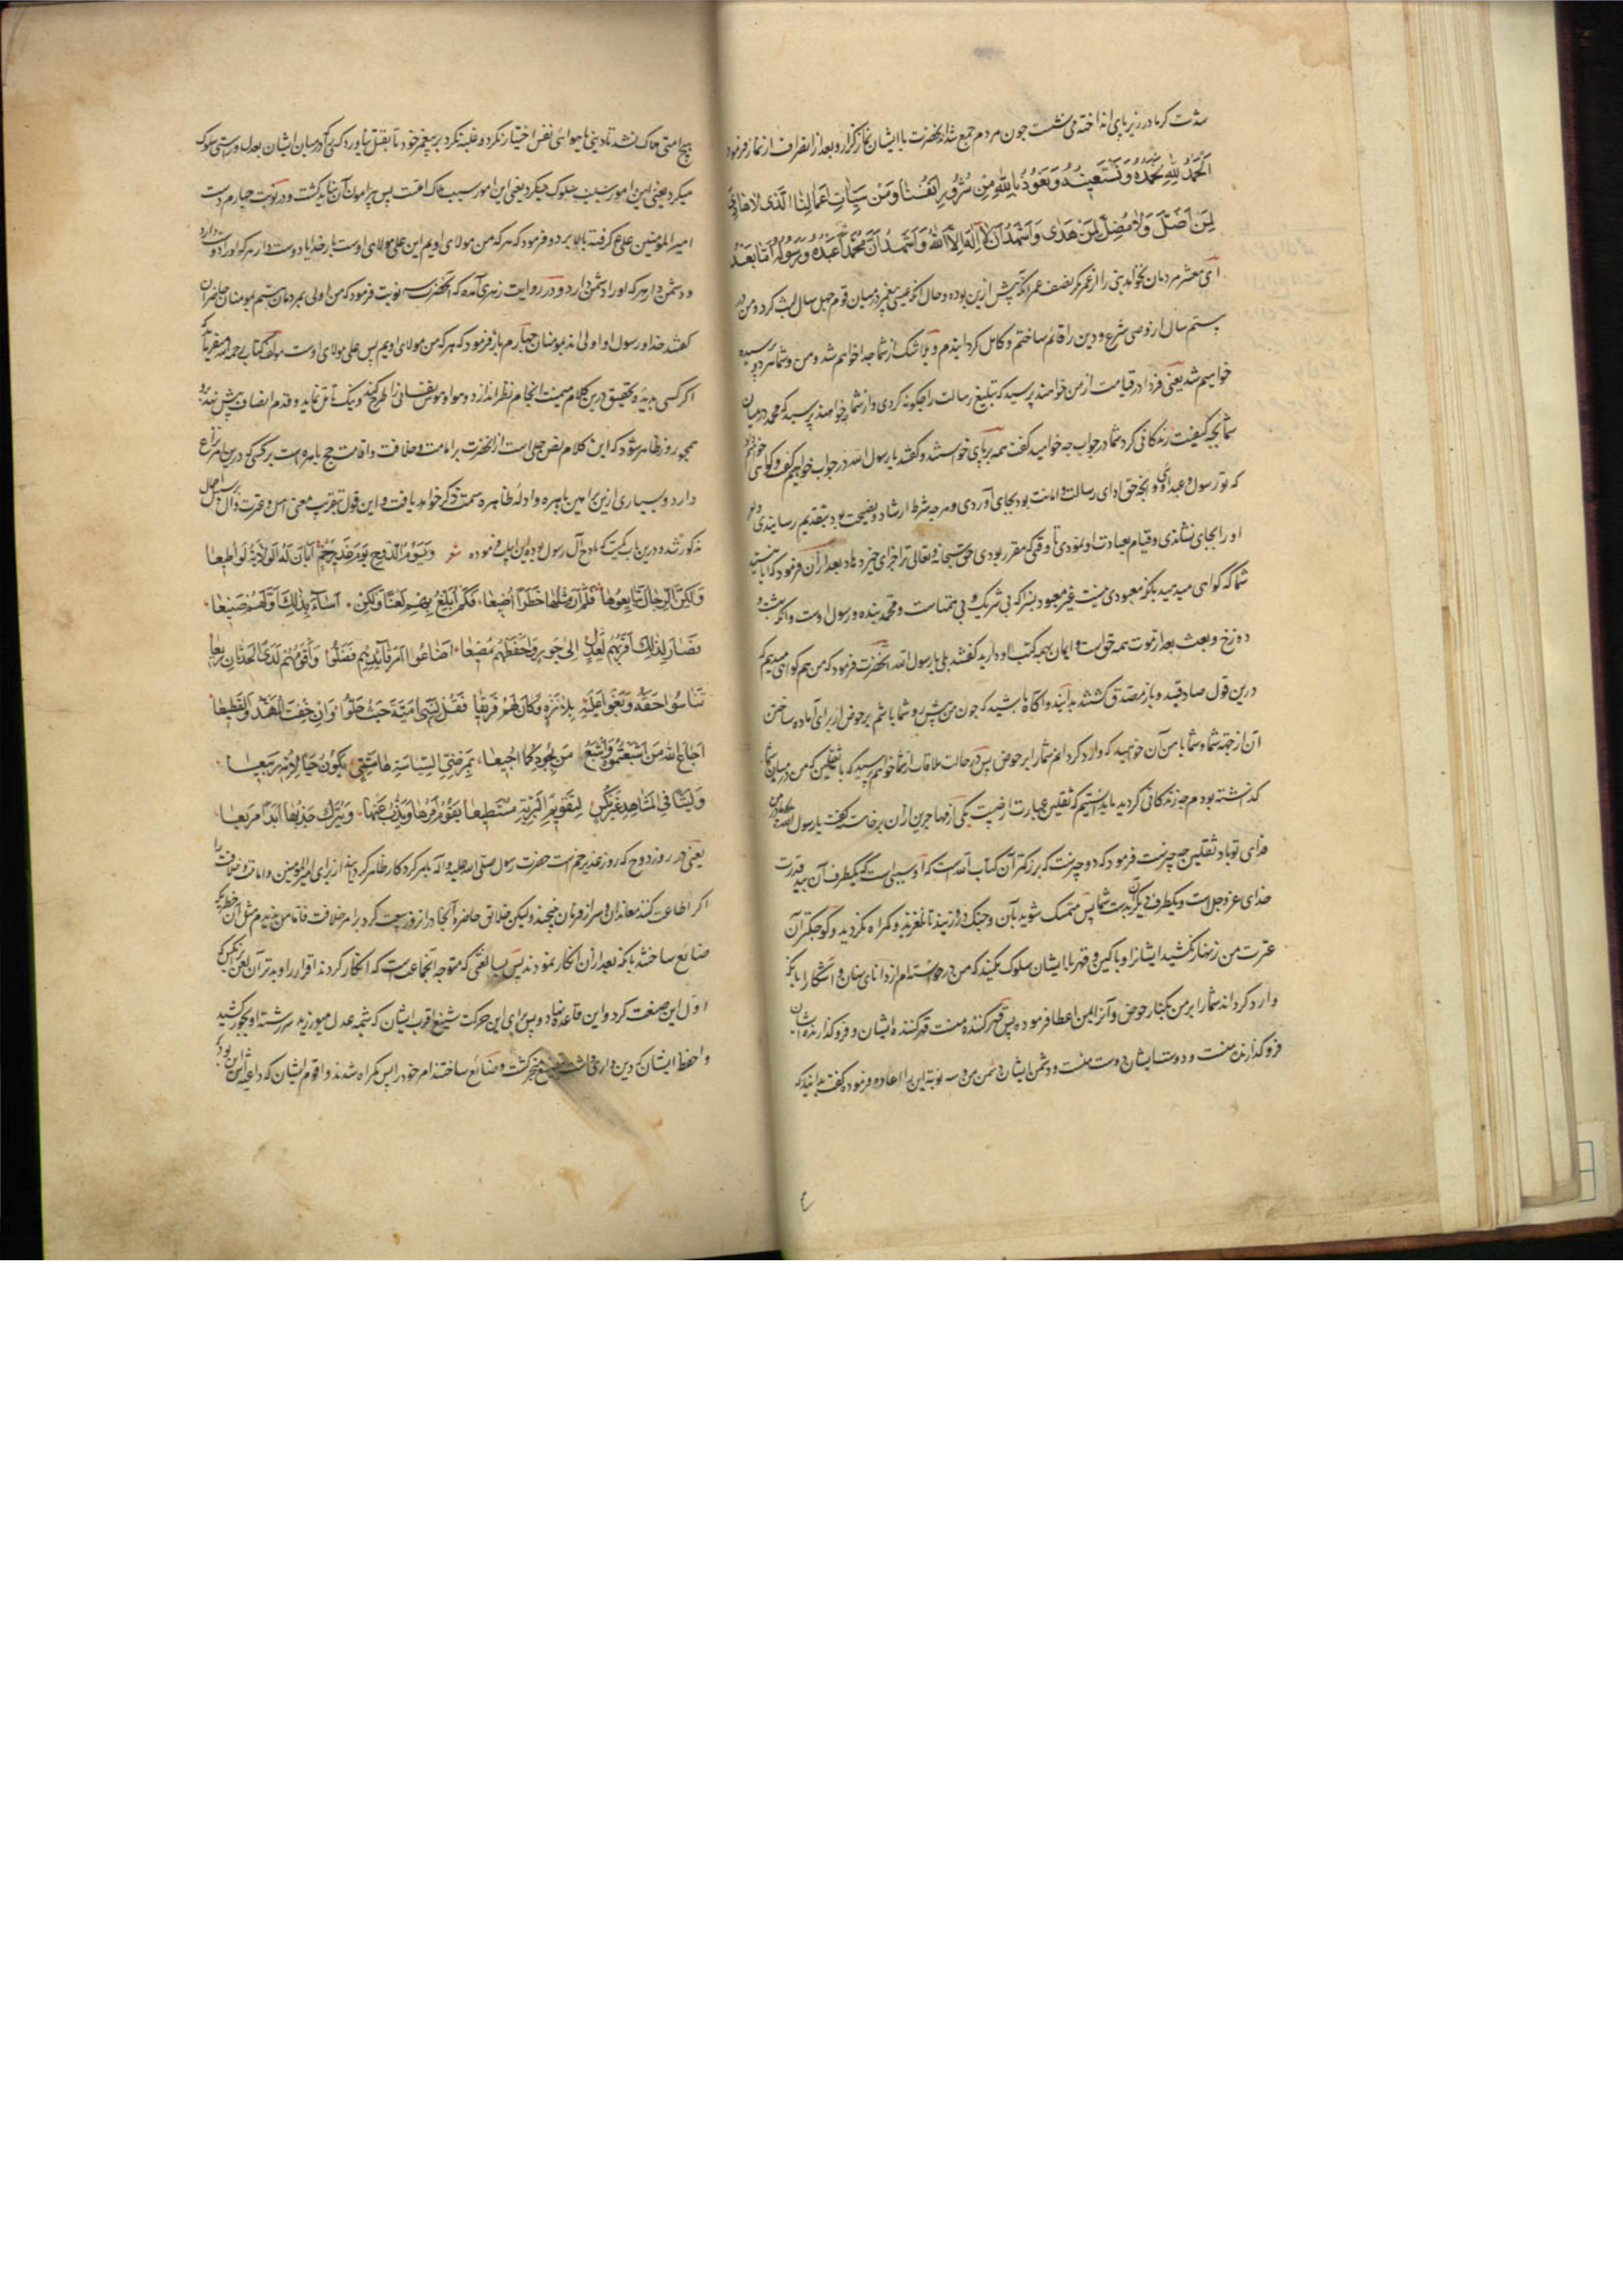 شدت گرما در زیر پای انداخته می نشست چون مردم جمع شد آنحضرت با ایشان نماز گزارد و بعد از انصراف از نماز فرمود
اَلْحَمْدُ لِلّٰهِ نَحْمَدُهُ وَنَسْتَعِینُهُ وَنَعُوذُ بِاللّٰهِ مِنْ شُرُورِ اَنْفُسِنَا وَمِنْ سَیِّاٰتِ اَعْمَالِنَا الَّذی لَا هَادِیَ
لِمَنْ اَضَلَّ وَلَا مُضِلَّ لِمَنْ هَدٰی وَاَشْهَدُ اَنْ لَا اِلٰهَ اِلَّا اللّٰهُ وَاَشْهَدُ اَنَّ مُحَمَّداً عَبْدُهُ وَرَسُولُهُ اَمَّا بَعْدُ
ای معشر مردمان نبی را از عمر مگر نصف عمر آنکه پیش ازین بوده و حال آنکه عیسی پیغمبر در میان قوم چهل سال لبث کرد و من در
بیستم سال شرع و دین را قائم ساختم و کامل گردانیدم و بلا شک از شما جدا خواهم شد و من و شما پرسیده
خواهیم شد یعنی فردا در قیامت از من خواهند پرسید که تبلیغ رسالت را چکونه کردی و از شما خواهند پرسید که محمد در میان
شما بچه کیفیت زندگانی کرد شما در جواب چه خواهید گفت همه بر پای خواستند و گفتند یا رسول الله در جواب خواهیم گفت و گواهی خواهیم داد
که تو رسول و عبد اوئی و آنچه حق ادای رسالت و امانت بود بجای آوردی و هر چه شرط ارشاد و نصیحت بود بتقدیم رسانیدی و امر
او را بجای نشاندی و قیام بعبادت او نمودی تا وقتی که مقرر بودی حق سبحانه و تعالی ترا جزای خیر دهاد بعد از آن فرمود که آیا نیستید
شما که گواهی میدهید بآنکه معبودی نیست غیر معبود بسزا که بی شریک و بی همتاست و محمد بنده و رسول اوست و آنکه بهشت و
دوزخ و بعث بعد از موت همه حق است و ایمان بهمه کتب او دارید گفتند بلی یا رسول الله آنحضرت فرمود که من هم گواهی میدهم که
درین قول صادقید و باز مصدق گشتند بدانید و آگاه باشید که چون من پیش رو شما باشم بر حوض از برای آماده ساختن
آن از جهة شما و شما با من آن خواهید که وارد گردانم شما را بر حوض پس در حالت ملاقات از شما خواهم پرسید که با ثقلین که من در میان شما
گذاشته بودم چه زندگانی کردید ما ندانستیم که ثقلین عبارت از چیست یکی از مهاجرین از آن برخاست گفت یا رسول الله
فدای تو باد ثقلین چه چیزست فرمود که دو چیزست که بزرگتر آن کتاب الله است که آن سببی است که یکطرف آن بید قدرت
خدای عز و جل است و یکطرف دیگر آن بدست شما پس متمسک شوید بآن و چنگ در و زنید تا نلغزید و گمراه نگردید و کوچکتر آن
عترت من زنهار نکشید ایشانرا و با کین و قهر با ایشان سلوک نکنید که من در خواسته ام از دانای نهان و آشکارا بآنکه
وارد گرداند شما را بر من بکنار حوض و آنرا بمن اعطا فرموده پس قهر کننده منست قهر کننده ایشان و فرو گذارنده ایشان
فرو گذارنده منست و دوست ایشان دوست منست و دشمن ایشان دشمن من و سه نوبة این را اعاده فرموده گفت بدانید که
هیچ امتی هلاک نشد تا دینی با هوائی نفس اختیار نکرد و غلبه نکرد بر پیغمبر خود تا بقتل نیاورد کسی که در میان ایشان بعدل و راستی سلوک
میکرد یعنی این امور سبب هلاک امتست پس پیرامون آن نباید گشت و در نوبت چهارم دست
امیر المؤمنین علی ع گرفته بالا برد و فرمود که هر که من مولای اویم این علی مولای اوست بار خدایا دوست دار هر که او را دوست دارد
و دشمن دار هر که او را دشمن دارد و در روایت زهری آمده که آنحضرت سه نوبت فرمود که من اولی بمردمان هستم بمؤمنان حاضران
گفتند خدا و رسول او اولی اند بمؤمنان چهارم بار فرمود که هر که من مولای اویم پس علی مولای اوست مؤلف کتاب رحمه الله میفرماید که
اگر کسی بدیده تحقیق درین کلام میمنت انجام نظر اندازد و هوا و هوس نفسانی را طرح کند و نیک تأمل نماید و قدم انصاف پیش نهد
همچو روز ظاهر شود که این کلام نص جلی است از آنحضرت بر امامت و خلافت و اقامت حج باهره است بر کسی که درین امر نزاع
دارد و بسیاری ازین براهین باهره و ادله ظاهره سمت ذکر خواهد یافت و این قول بتقریب معنی اهل و عترت و آل بر سبیل اجمال
مذکور شد و درین باب کمیت که مادح آل رسول بوده این ابیات فرموده شعر وَیَوْمَ الدَّوْحِ یَوْمَ غَدِیرِ خُمٍّ اَبَانَ لَهُ الْوَلَایَةَ لَوْ اُطِیعَا
وَلٰکِنَّ الرِّجَالَ تَبَایَعُوهَا فَلَمْ اَرَ مِثْلَهَا خَطَراً اُضِیعَا فَلَمْ اَبْلُغْ بِهِمْ لَعْناً وَلٰکِنْ اَسَاءَ بِذٰلِکَ اَوَّلُهُمْ صَنِیعَا
فَصَارَ لِذٰلِکَ اَقْرَبُهُمْ لِعَدْلٍ اِلیٰ جَوْرٍ وَاَحْفَظُهُمْ مُضِیعَا اَضَاعُوا اَمْرَ قَائِدِهِمْ فَضَلُّوا وَاَقْوَمِهِمْ لَدَی الْحَدَثَانِ رِیعَا
تَنَاسَوْا حَقَّهُ وَبَغَوْا عَلَیْهِ بِلَا تِرَةٍ وَکَانَ لَهُمْ قَرِیعَا فَقُلْ لِبَنِی اُمَیَّةَ حَیْثُ حَلُّوا وَاِنْ خِفْتَ الْمُهَنَّدَ وَالْقَطِیعَا
اَجَاعَ اللّٰهُ مَنْ اَشْبَعْتُمُوهُ وَاَشْبَعَ مَنْ بِجَوْرِکُمْ اُجِیعَا بِمَرْضِیِّ السِّیَاسَةِ هَاشِمِیٍّ یَکُونُ حَیّاً لِاُمَّتِهِ رَبِیعَا
وَلَیْثاً فِی الْمَشَاهِدِ غَیْرَ نِکْسٍ لِتَقْوِیمِ الْبَرِیَّةِ مُسْتَطِیعَا یُقِیمُ اُمُورَهَا وَیَذُبُّ عَنْهَا وَیَتْرُکُ جَدْبَهَا اَبَداً مَرِیعَا
یعنی در روز دوح که روز غدیر خم است حضرت رسول صلی الله علیه و آله بامر کردگار ظاهر گردانید از برای امیر المؤمنین و امامت و خلافت را
اگر اطاعت کنند معاندان و سر از فرمان نپیچند و لیکن خلائق حاضره آنجا در آنروز بیعت کردند بامر خلافت فاما من ندیدم مثل آن خطر که
ضایع ساختند بآنکه بعد از آن انکار نمودند پس مبالغتی که متوجه آنجماعت است که انکار کردند اقرار را و بدتر آن لعن بر آنکس که
اول این صنعت کرد و این قاعده نهاد و پس برای این حرکت شنیع اقرب ایشان که شیمه عدل میورزید سر رشته او بجور کشید
و احفظ ایشان که دین داری داشت گشت و ضایع ساختند امر خود را پس گمراه شدند و اقوم ایشان که داعیه اش این بود که